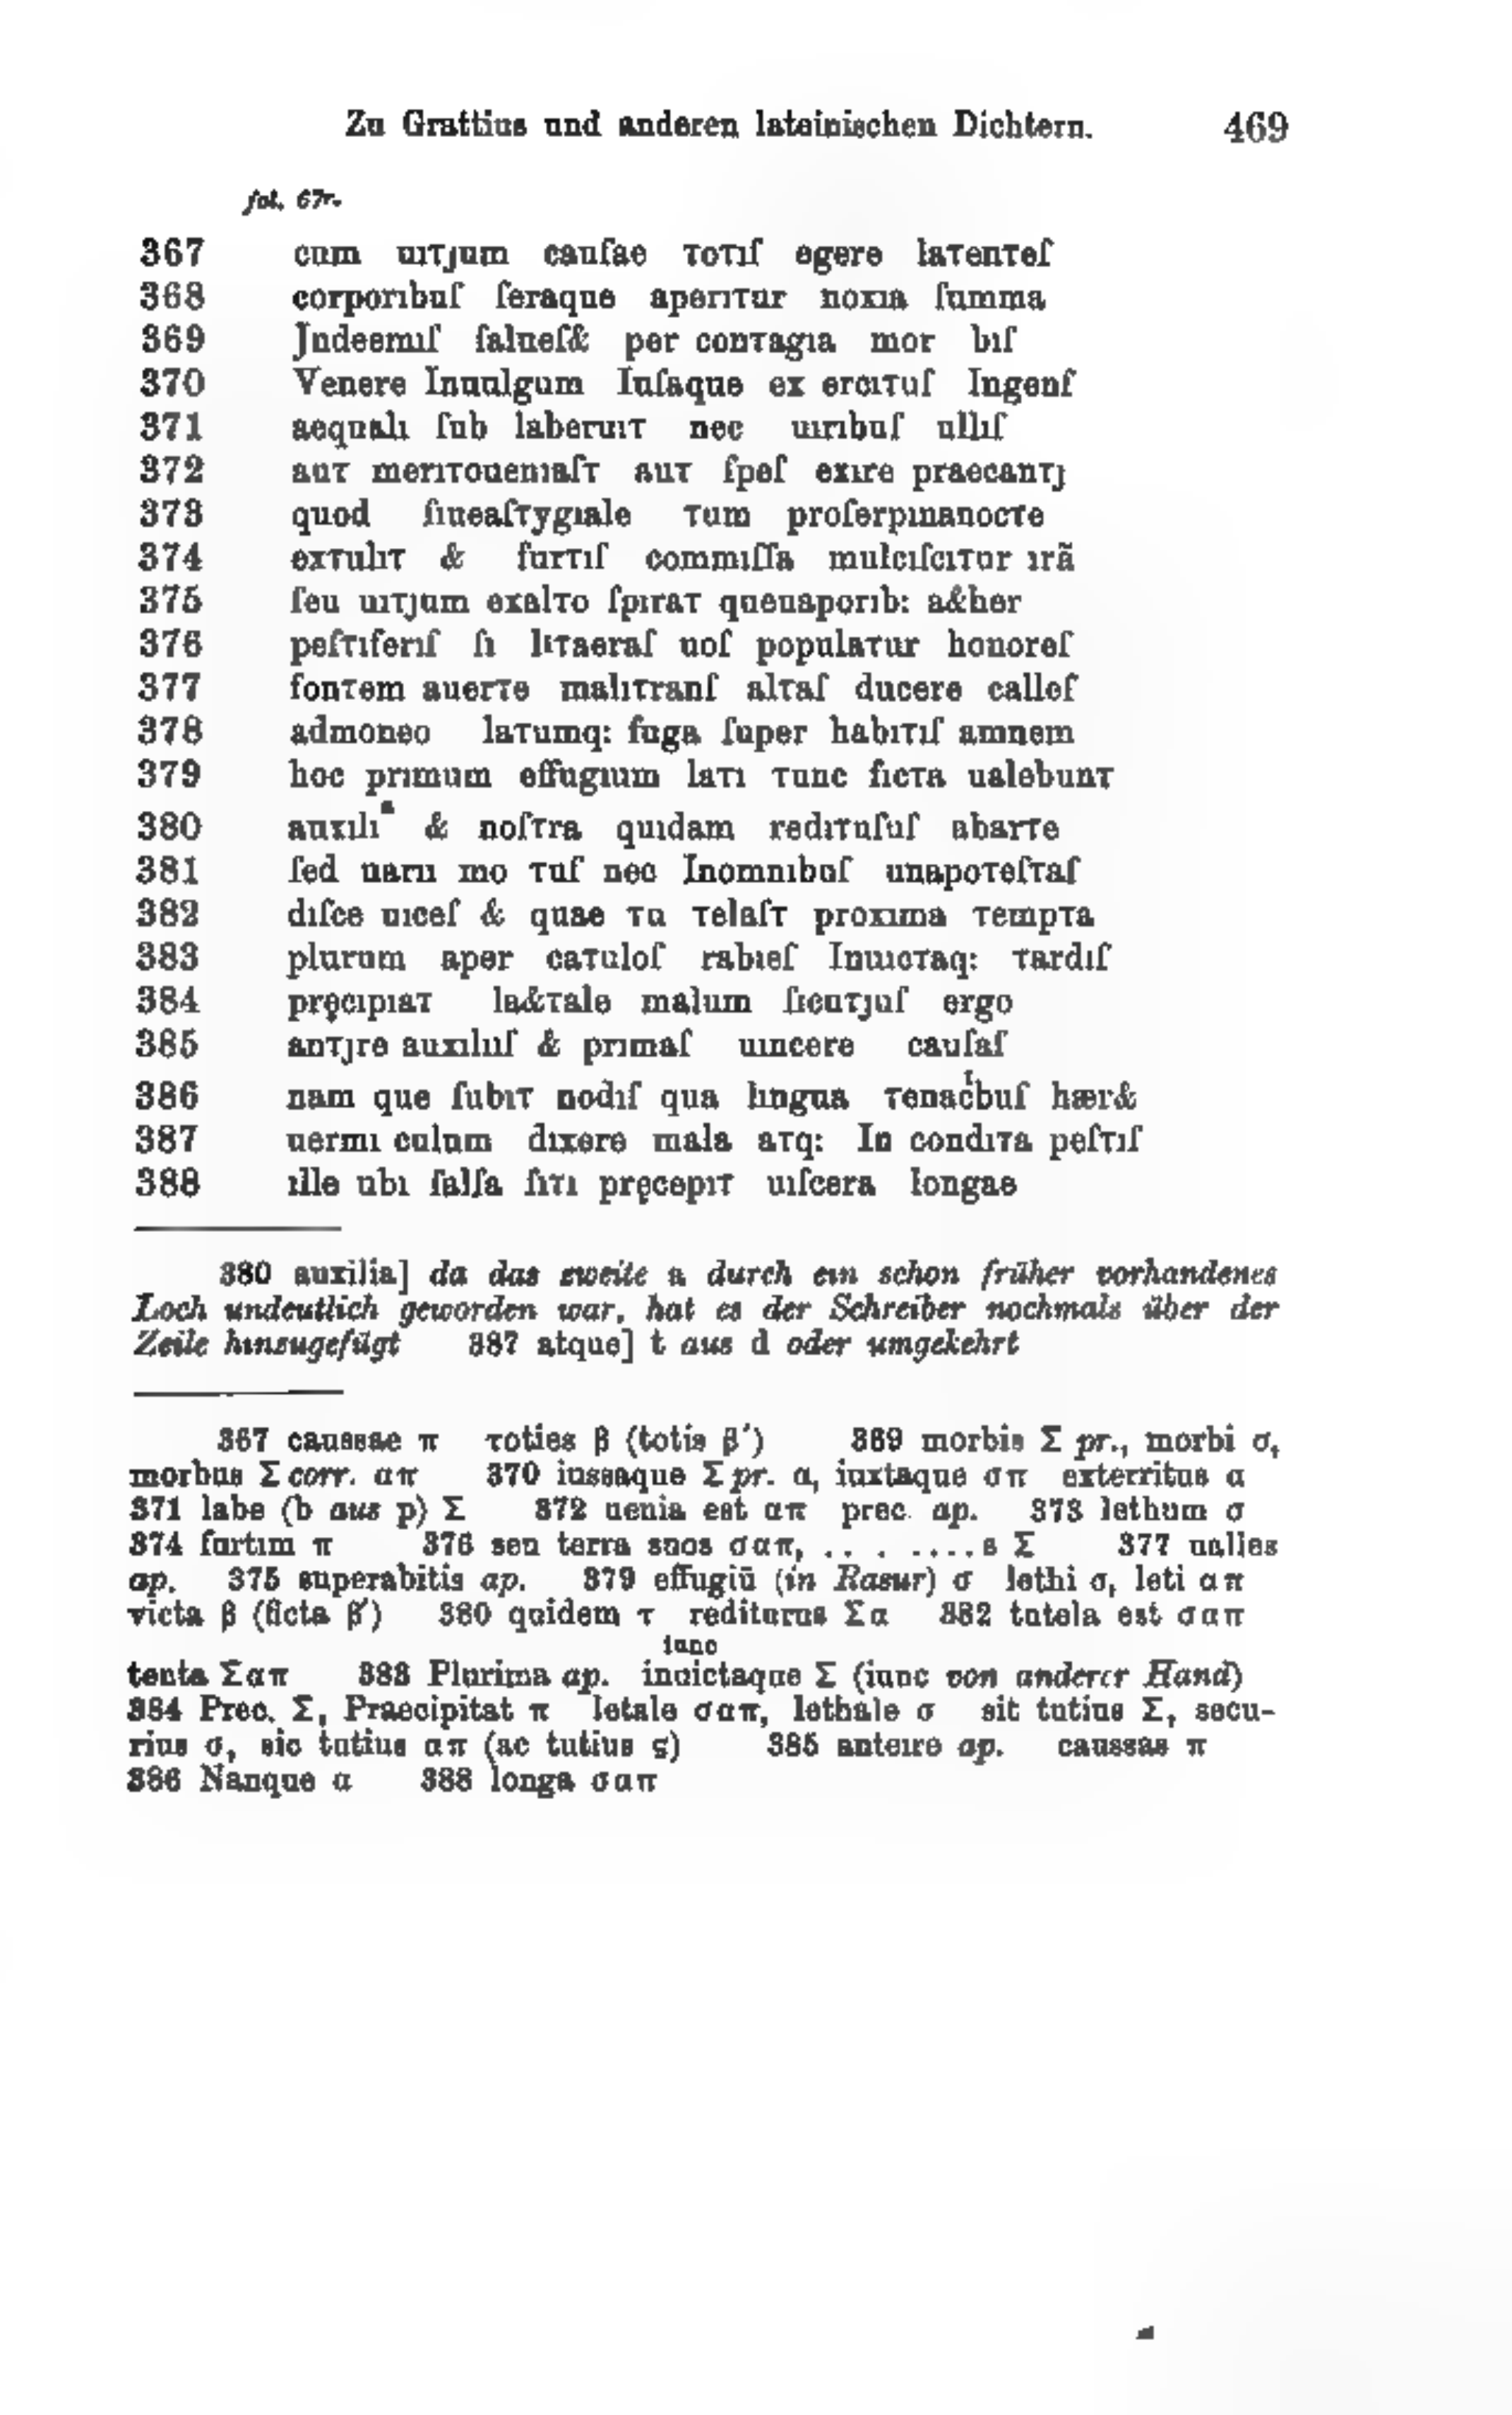 Zu Grattius und anderen lateinischen Dichtern. 469
fol. 67r.
367 cum uıτȷum cauſae τoτıſ egere laτenτeſ
368 corporıbuſ ſeraque aperıτur noxıa ſumma
369 Jndeemıſ ſalueſ& per conτagıa mor bıſ
370 Venere Inuulgum Iuſaque ex ercıτuſ Ingenſ
371 aequalı ſub laberuıτ nec uırıbuſ ullıſ
372 auτ merıτouenıaſτ auτ ſpeſ exıre praecanτȷ
373 quod ſıueaſτygıale τum proſerpınanocτe
374 exτulıτ & furτıſ commıſſa mulcıſcıτur ırã
375 ſeu uıτȷum exalτo ſpıraτ queuaporıb: a&her
376 peſτıferıſ ſı lıτaeraſ uoſ populaτur honoreſ
377 fonτem auerτe malıτranſ alτaſ ducere calleſ
378 admoneo laτumq: fuga ſuper habıτıſ amnem
379 hoc prımum effugıum laτı τunc fıcτa ualebunτ
380 auxılıᵃ & noſτra quıdam redıτuſuſ abarτe
381 ſed uaru mo τuſ nec Inomnıbuſ unapoτeſτaſ
382 dıſce uıceſ & quae τu τelaſτ proxıma τempτa
383 plurum aper caτuloſ rabıeſ Inuıcτaq: τardıſ
384 pręcıpıaτ la&τale malum ſıcuτȷuſ ergo
385 anτȷre auxılııſ & prımaſ uıncere cauſaſ
386 nam que ſubıτ nodıſ qua lıngua τenacᶦbuſ hær&
387 uermı culum dıxere mala aτq: In condıτa peſτıſ
388 ılle ubı ſalſa ſıτı pręcepıτ uıſcera longae
380 auxilia] da das zweite a durch ein schon früher vorhandenes
Loch undeutlich geworden war, hat es der Schreiber nochmals über der
Zeile hinzugefügt 387 atque] t aus d oder umgekehrt
367 caussae π τoties β (totis β′) 369 morbis Σ pr., morbi σ,
morbus Σ corr. απ 370 iussaque Σ pr. α, iuxtaque σπ exterritus α
371 labe (b aus p) Σ 372 uenia est απ prec. ap. 373 lethum σ
374 furtim π 376 seu terra suos σαπ, .. . ....s Σ 377 ualles
ap. 375 superabitis ap. 379 effugiū (in Rasur) σ lethi σ, leti απ
victa β (ficta β′) 380 quidem τ rediturus Σα 382 tutela est σαπ
iunc
tenta Σαπ 383 Plurima ap. inuictaque Σ (iunc von anderer Hand)
384 Prec. Σ, Praecipitat π letale σαπ, lethale σ sit tutius Σ, secu-
rius σ, sic tutius απ (ac tutius ς) 385 anteire ap. caussas π
386 Nanque α 388 longa σαπ